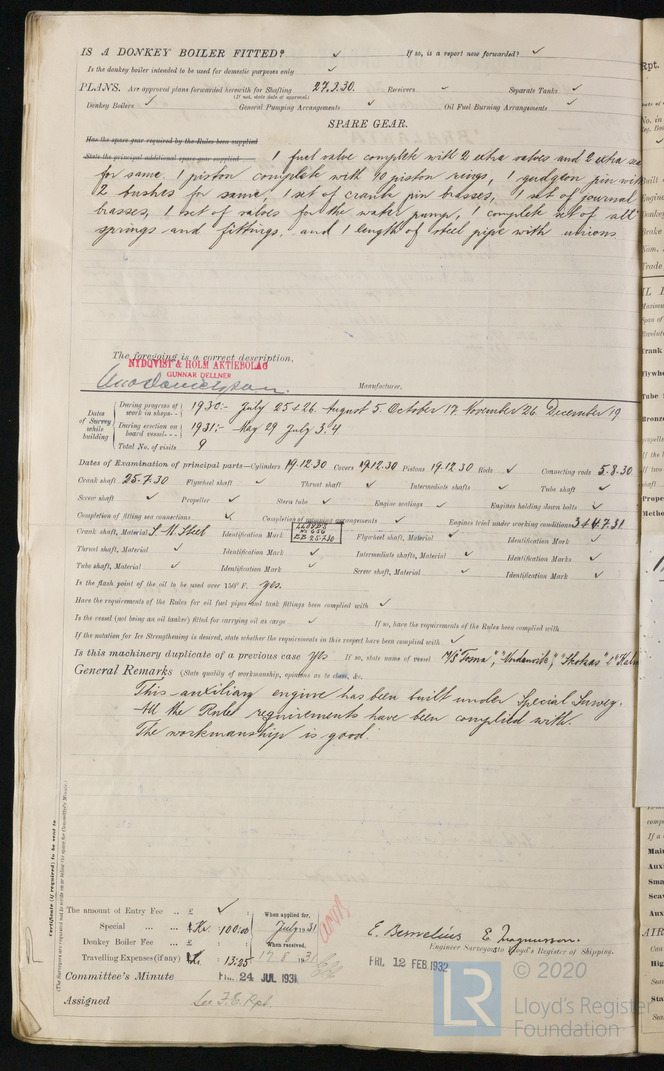 IS A DONKEY BOILER FITTED? ✓ If so, is a report now forwarded? ✓
Is the donkey boiler intended to be used for domestic purposes only ✓
PLANS. Are approved plans forwarded herewith for Shafting 27.2.30. Receivers ✓ Separate Tanks ✓
(If not, state date of approval)
Donkey Boilers ✓ General Pumping Arrangements ✓ Oil Fuel Burning Arrangements ✓
SPARE GEAR.
Has the spare gear required by the Rules been supplied
State the principal additional spare gear supplied 1 fuel valve complete with 2 extra valves and 2 extra
for same, 1 piston complete with 10 piston rings, 1 gudgeon pin with
2 bushes for same, 1 set of crank pin brasses, 1 set of journal
brasses, 1 set of valves for the water pump, 1 complete set of all
springs and fittings, and 1 length of steel pipe with unions
The foregoing is a correct description,
NYDQVIST & HOLM AKTIEBOLAG
GUNNAR DELLNER
Manufacturer.
Dates of Survey while building
During progress of work in shops - - 1930:- July 25 & 26. August 5. October 17. November 26 December 19
During erection on board vessel - - - 1931:- May 29 July 3.4
Total No. of visits 9
Dates of Examination of principal parts—Cylinders 19.12.30 Covers 19.12.30 Pistons 19.12.30 Rods ✓ Connecting rods 5.8.30
Crank shaft 25.7.30 Flywheel shaft ✓ Thrust shaft ✓ Intermediate shafts ✓ Tube shaft ✓
Screw shaft ✓ Propeller ✓ Stern tube ✓ Engine seatings ✓ Engines holding down bolts ✓
Completion of fitting sea connections ✓ Completion of pumping arrangements ✓ Engines tried under working conditions 3 & 4.7.31
Crank shaft, Material S. M. Steel Identification Mark LLOYD'S No 656 EB 25.7.30 Flywheel shaft, Material ✓ Identification Mark ✓
Thrust shaft, Material ✓ Identification Mark ✓ Intermediate shafts, Material ✓ Identification Marks ✓
Tube shaft, Material ✓ Identification Mark ✓ Screw shaft, Material ✓ Identification Mark ✓
Is the flash point of the oil to be used over 150° F. Yes.
Have the requirements of the Rules for oil fuel pipes and tank fittings been complied with ✓
Is the vessel (not being an oil tanker) fitted for carrying oil as cargo ✓ If so, have the requirements of the Rules been complied with
If the notation for Ice Strengthening is desired, state whether the requirements in this respect have been complied with ✓
Is this machinery duplicate of a previous case Yes If so, state name of vessel
General Remarks (State quality of workmanship, opinions as to class, &c.
This auxiliary engine has been built under Special Survey.
All the Rules requirements have been complied with.
The workmanship is good.
Certificate (if required) to be sent to
(The Surveyors are requested not to write on or below the space for Committee's Minute.)
The amount of Entry Fee .. £ ✓ When applied for,
Special ... ... Kr. 100.00 July 1931
Donkey Boiler Fee ... £ When received,
Travelling Expenses (if any) Kr. 13.25 17.8.1931
E. Bernelius E. Magnusson.
Engineer Surveyor to Lloyd's Register of Shipping.
FRI. 12 FEB 1932
Committee's Minute FRI. 24 JUL 1931
Assigned See F.E. Rpt.
LR © 2020
Lloyd's Register
Foundation